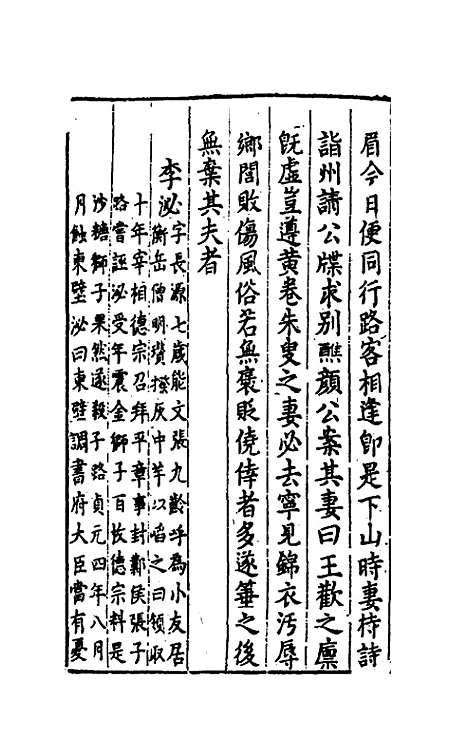 眉今日便同行路客相逢卽是下山時妻持詩
詣州請公牒求别醮顔公案其妻曰王歡之廪
旣虚豈遵黄卷朱叟之妻必去寧見錦衣汚辱
鄉閭敗傷風俗若無褒貶僥倖者多遂箠之後
無棄其夫者
李泌字長源七歲能文張九齡呼爲小友居
衡岳僧明瓚撥灰中芋以啗之曰領取
十年宰相德宗召拜平章事封鄴侯張子
路嘗誣泌受年震金獅子百枚德宗料是
沙糖獅子果然遂殺子路貞元四年八月
月蝕東壁泌曰東壁謂書府大臣當有憂